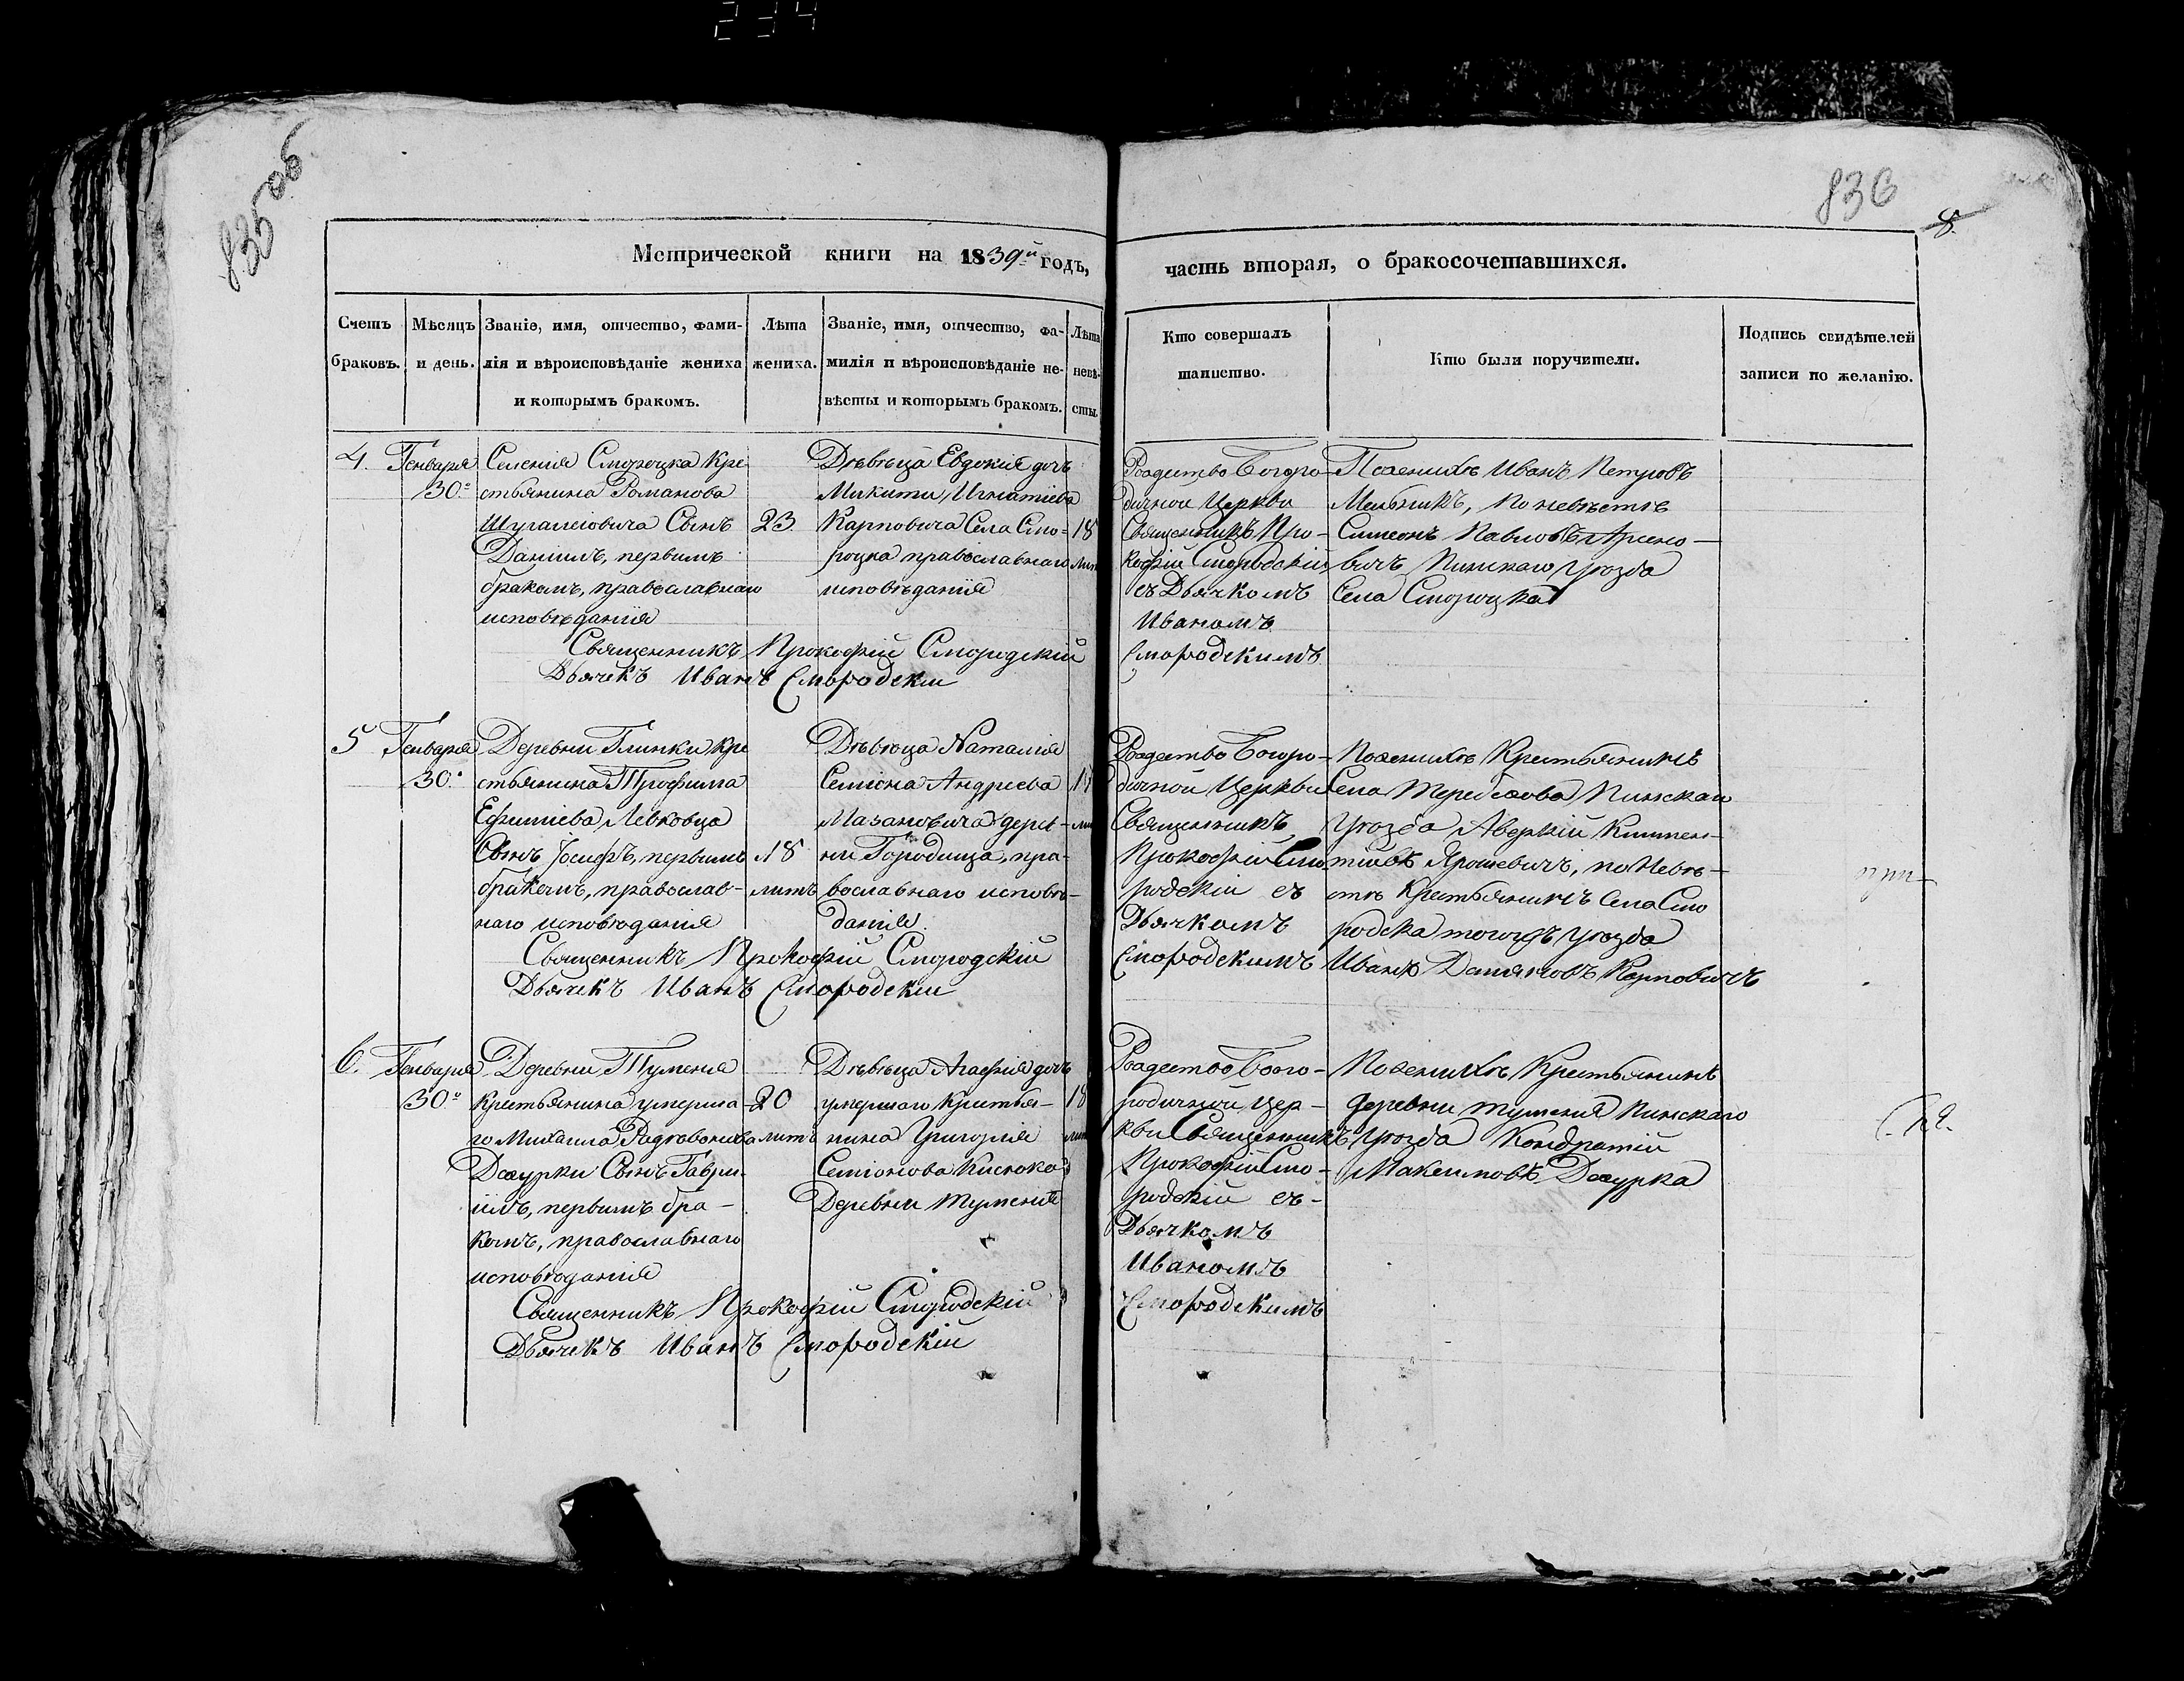 234
835 об
836
8.
Метрической книги на 1839й годъ,
часть вторая, о бракосочетавшихся.
Счетъ браковъ.
Мѣсяцъ и день.
Званіе, имя, отчество, фами-
лія и вѣроисповѣданіе жениха
и которымъ бракомъ.
Лѣта
жениха.
Званіе, имя, отчество, фа-
милія и вѣроисповѣданіе не-
вѣсты и которымъ бракомъ.
Лѣта
невѣ-
сты
Кто совершалъ
таинство.
Кто были поручители.
Подпись свидѣтелей
записи по желанію.
4.
Генваря
30.
Селенія Смороцка Кре
стьянина Романова
сынъ
Даніилъ, первымъ
бракомъ, православнаго
исповѣданія
23
Дѣвѣца Евдокія дочь
Микити Игнатіева
Карповича Села Смо-
роцка православнаго
исповѣданія
18
лит
Рождество Богоро-
дичной Церкви
Священникъ Про-
кофій Смородскій
съ Дьячкомъ
Иваномъ
Смородскимъ
По женихѣ Иванъ Петровъ
Мельникъ, по невѣстѣ
Симеонъ Павловъ
вичъ Пинскаго уѣзда
Села Смороцка
Священникъ Прокофій Смородскій
Дьячекъ Иванъ Смородскій
5
Генваря
30.
Деревни Глинки кре
стьянина Трофима
Ефиміева Левковца
Сынъ Іосифъ, первымъ
бракомъ, православ-
наго исповѣданія
18
литъ
Дѣвѣца Наталія
Семіона Андреева
Мазановича дерев-
ни Городища, пра-
вославнаго исповѣ-
данія.
Рождество Богоро-
дичной Церкви
Священникъ
Прокофій Смо-
родскій съ
Дьячкомъ
Смородскимъ
По женихѣ Крестьянинъ
Села Теребежова Пинскаго
Уѣзда Аверкій Климен-
тіевъ Ярошевичъ, по Невѣ-
стѣ Крестьянинъ Села Смо
родска тогожъ уѣзда
Иванъ Демяновъ Карповичъ
Священникъ Прокофій Смородскій
Дьячекъ Иванъ Смородскій
6.
Генваря
30.
Деревни Тумения
Крестьянина умерша-
го Михаила
Дощурки Сынъ Гаври-
іилъ, первымъ бра-
комъ, православнаго
исповѣданія
20
литъ
Дѣвѣца Агафія дочь
умершаго Крестья-
нина Григорія
Семіонова
Деревни Тумения
18
лит
Рождество Бого-
родичной Цер-
кви Священникъ
Прокофій Смо-
родскій съ
Дьячкомъ
Иваномъ
Смородскимъ
По женихѣ Крестьянинъ
деревни Тумения Пинскаго
Уѣзда Кондратій
Максимовъ Дощурка
Священникъ Прокофій Смородскій
Дьячекъ Иванъ Смородскій